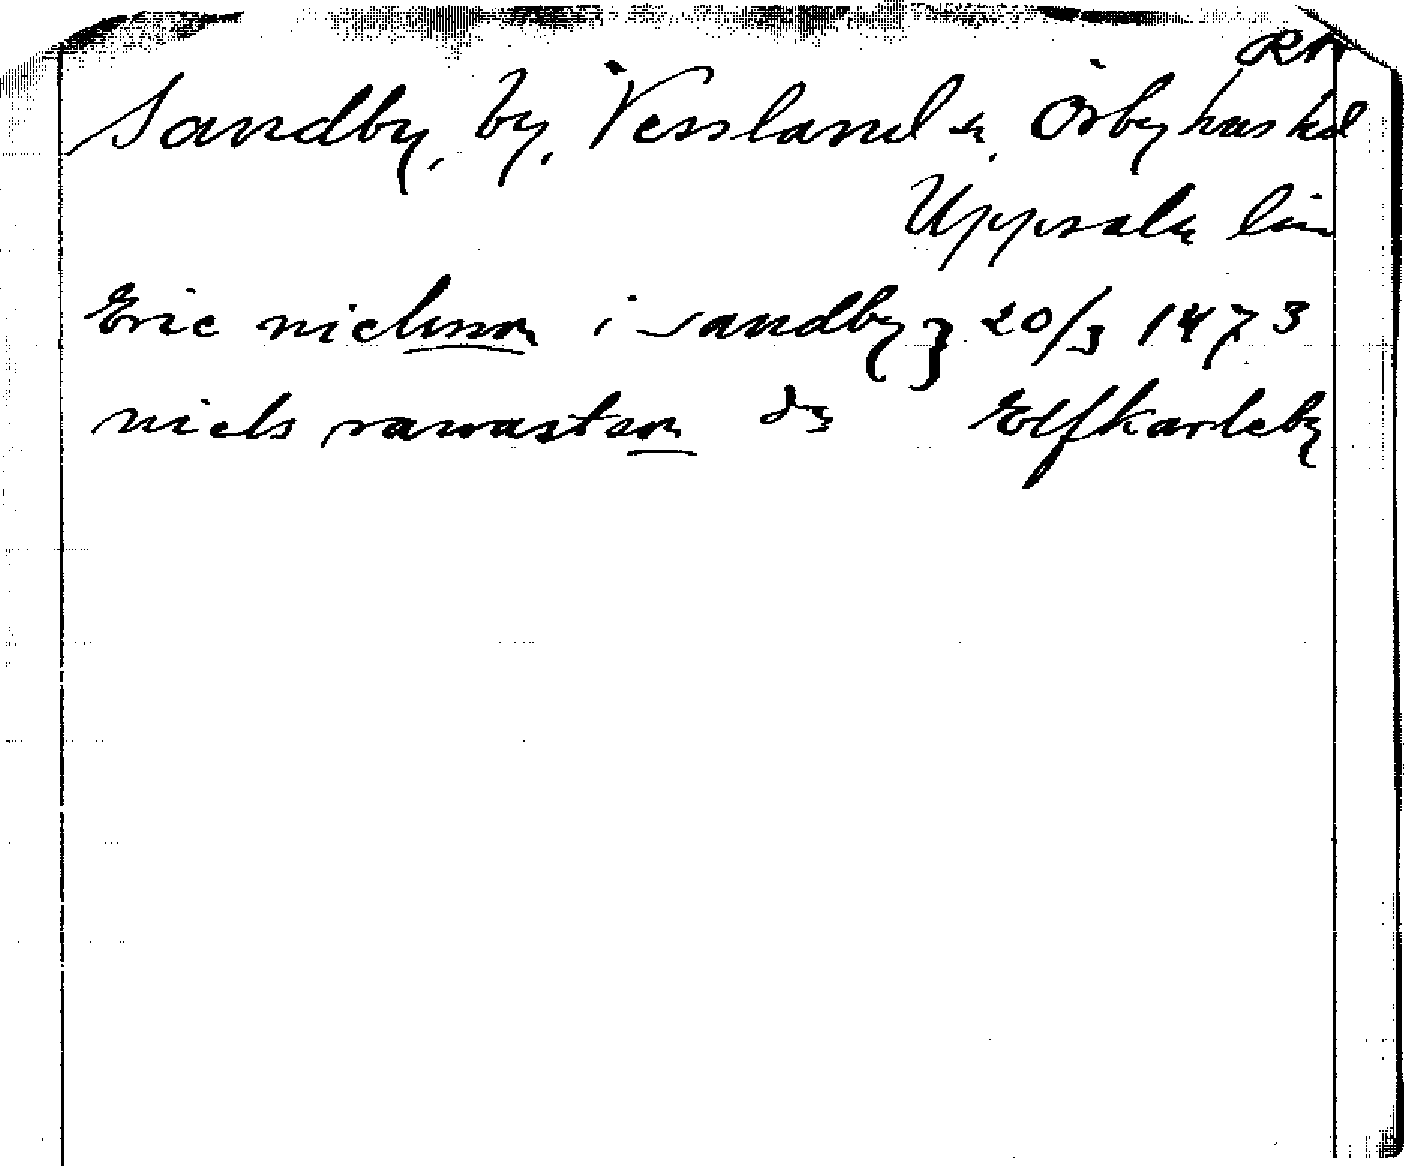 RA
Sandby, by, Vessland sn, Örbyhus hd
Uppsala län
Eric nielsson i sandby } 20/3 1473
niels rawasten ds Elfkarleby